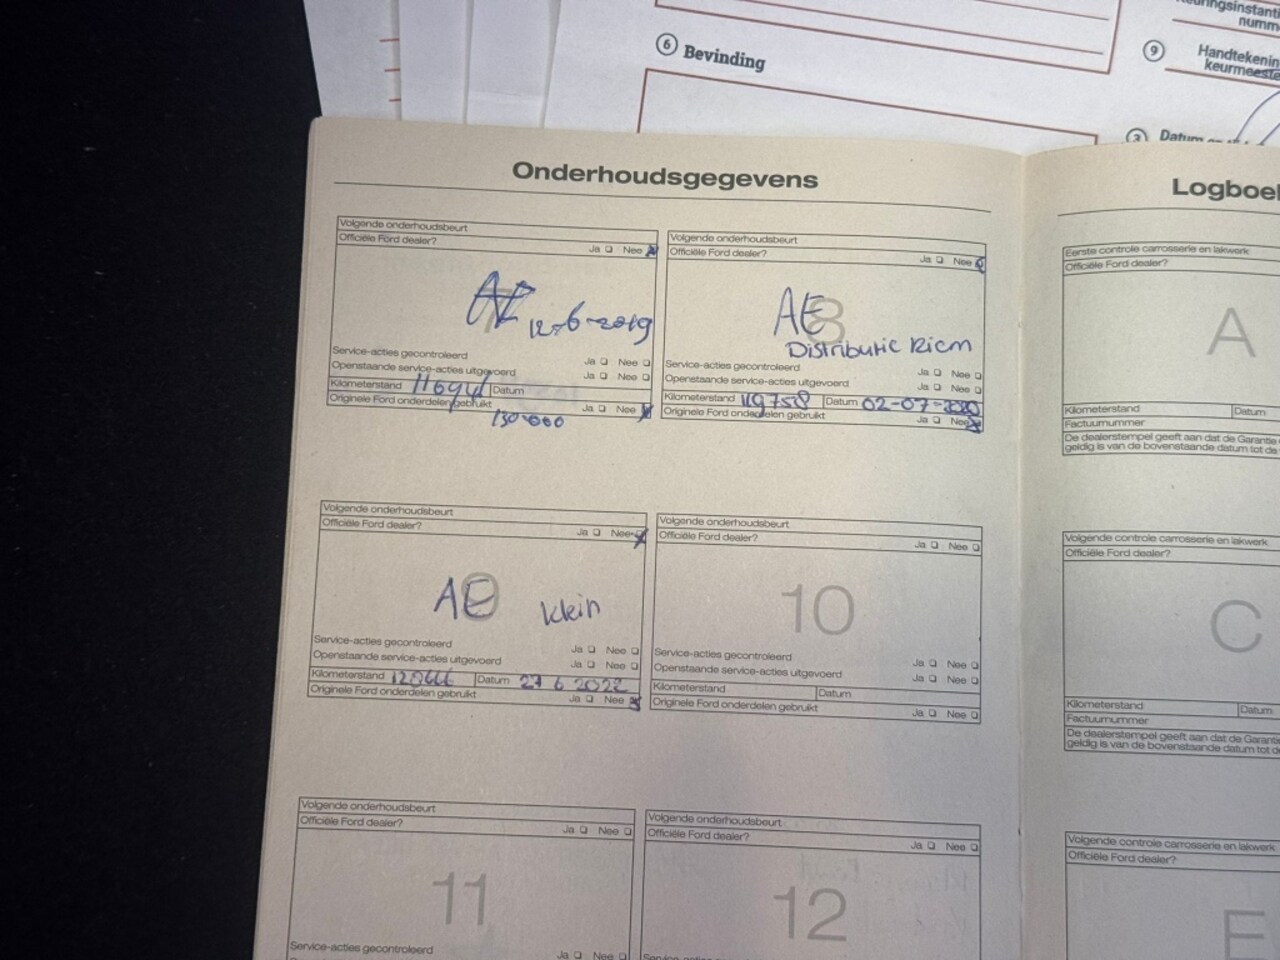 Keuringsinstanti
numm
6 Bevinding
9 Handtekenin
keurmeeste
Datum
Onderhoudsgegevens
Volgende onderhoudsbeurt
Officiële Ford dealer?
Ja Nee
12-6-2019
Service-acties gecontroleerd
Ja Nee
Openstaande service-acties uitgevoerd
Ja Nee
Kilometerstand Datum
Originele Ford onderdelen gebruikt
Ja Nee
130-000
Volgende onderhoudsbeurt
Officiële Ford dealer?
Ja Nee
8
AE
Distributie Riem
Service-acties gecontroleerd
Ja Nee
Openstaande service-acties uitgevoerd
Ja Nee
Kilometerstand 119758 Datum 02-07-2020
Originele Ford onderdelen gebruikt
Ja Nee
Volgende onderhoudsbeurt
Officiële Ford dealer?
Ja Nee
9
AE Klein
Service-acties gecontroleerd
Ja Nee
Openstaande service-acties uitgevoerd
Ja Nee
Kilometerstand 128666 Datum 27 6 2022
Originele Ford onderdelen gebruikt
Ja Nee
Volgende onderhoudsbeurt
Officiële Ford dealer?
Ja Nee
10
Service-acties gecontroleerd
Ja Nee
Openstaande service-acties uitgevoerd
Ja Nee
Kilometerstand Datum
Originele Ford onderdelen gebruikt
Ja Nee
Volgende onderhoudsbeurt
Officiële Ford dealer?
Ja Nee
11
Service-acties gecontroleerd
Ja Nee
Volgende onderhoudsbeurt
Officiële Ford dealer?
Ja Nee
12
Service-acties gecontroleerd
Ja Nee
Logboek
Eerste controle carrosserie en lakwerk
Officiële Ford dealer?
A
Kilometerstand Datum
Factuurnummer
De dealerstempel geeft aan dat de Garantie
geldig is van de bovenstaande datum tot de
Volgende controle carrosserie en lakwerk
Officiële Ford dealer?
C
Kilometerstand Datum
Factuurnummer
De dealerstempel geeft aan dat de Garantie
geldig is van de bovenstaande datum tot de
Volgende controle carrosserie en lakwerk
Officiële Ford dealer?
E